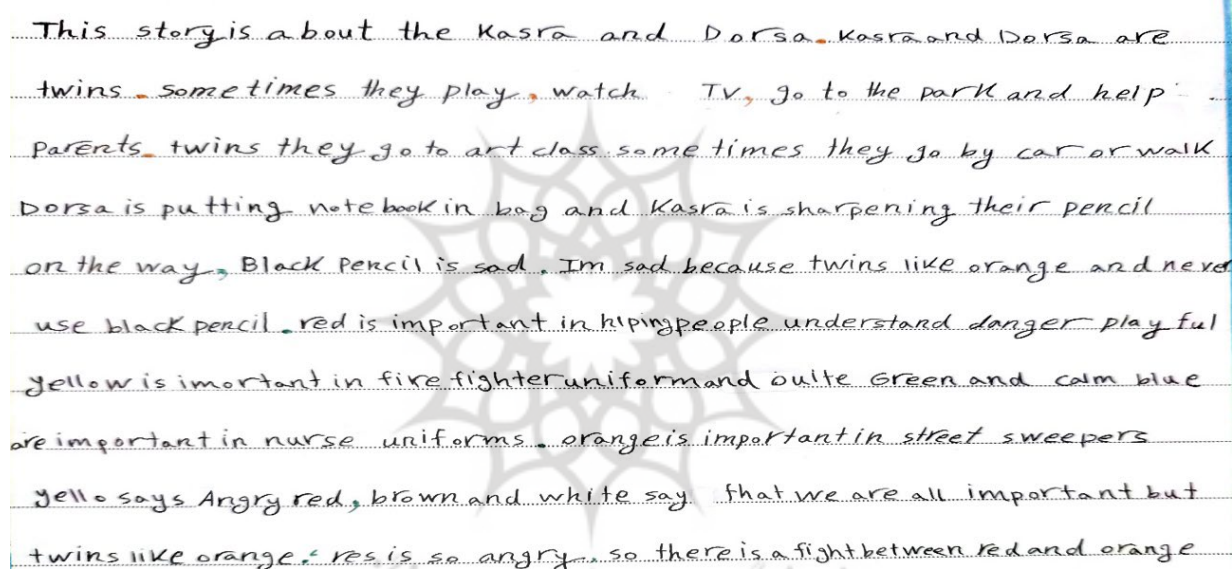 This story is about the Kasra and Dorsa. Kasra and Dorsa are
twins. sometimes they play, watch TV, go to the park and help
Parents. twins they go to art class. some times they go by car or walk
Dorsa is putting notebook in bag and Kasra is sharpening their pencil
on the way, Black Pencil is sad. Im sad because twins like orange and never
use black pencil. red is important in hipingpeople understand danger play ful
yellow is imortant in fire fighter uniform and ouite Green and calm blue
are important in nurse uniforms. orange is important in street sweepers
yello says Angry red, brown and white say that we are all important but
twins like orange. res is so angry. so there is a fight between red and orange